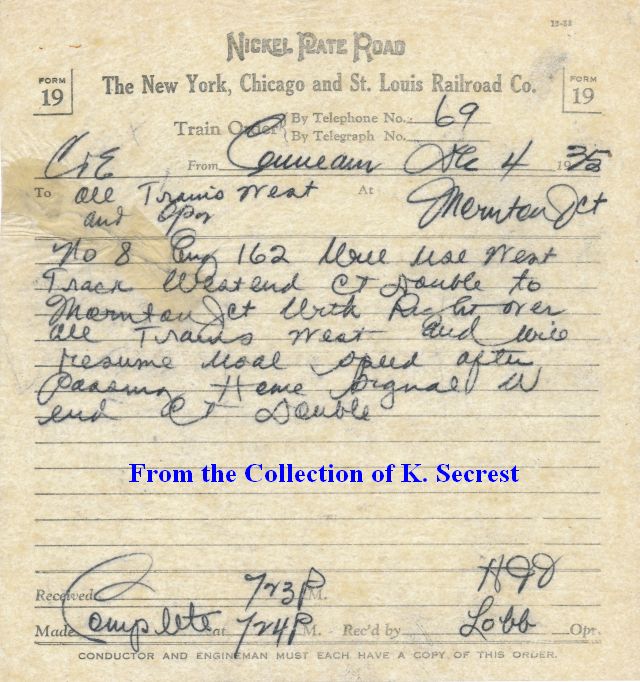 12-32
NICKEL PLATE ROAD
FORM 19
The New York, Chicago and St. Louis Railroad Co.
FORM 19
Train Order
By Telephone No. 69
By Telegraph No.
C&E From Conneaut Dec 4 1935
To All Trains West At Thornton Jct
and Opr
No 8 Eng 162 Will Use West
Track West end CT Double to
Thornton Jct With Right over
all Trains West and will
resume speed after
Passing Home Signal W
end CT Double
From the Collection of K. Secrest
Received 723P M. HJD
Made Complete at 724P M. Rec'd by Lobb Opr.
CONDUCTOR AND ENGINEMAN MUST EACH HAVE A COPY OF THIS ORDER.